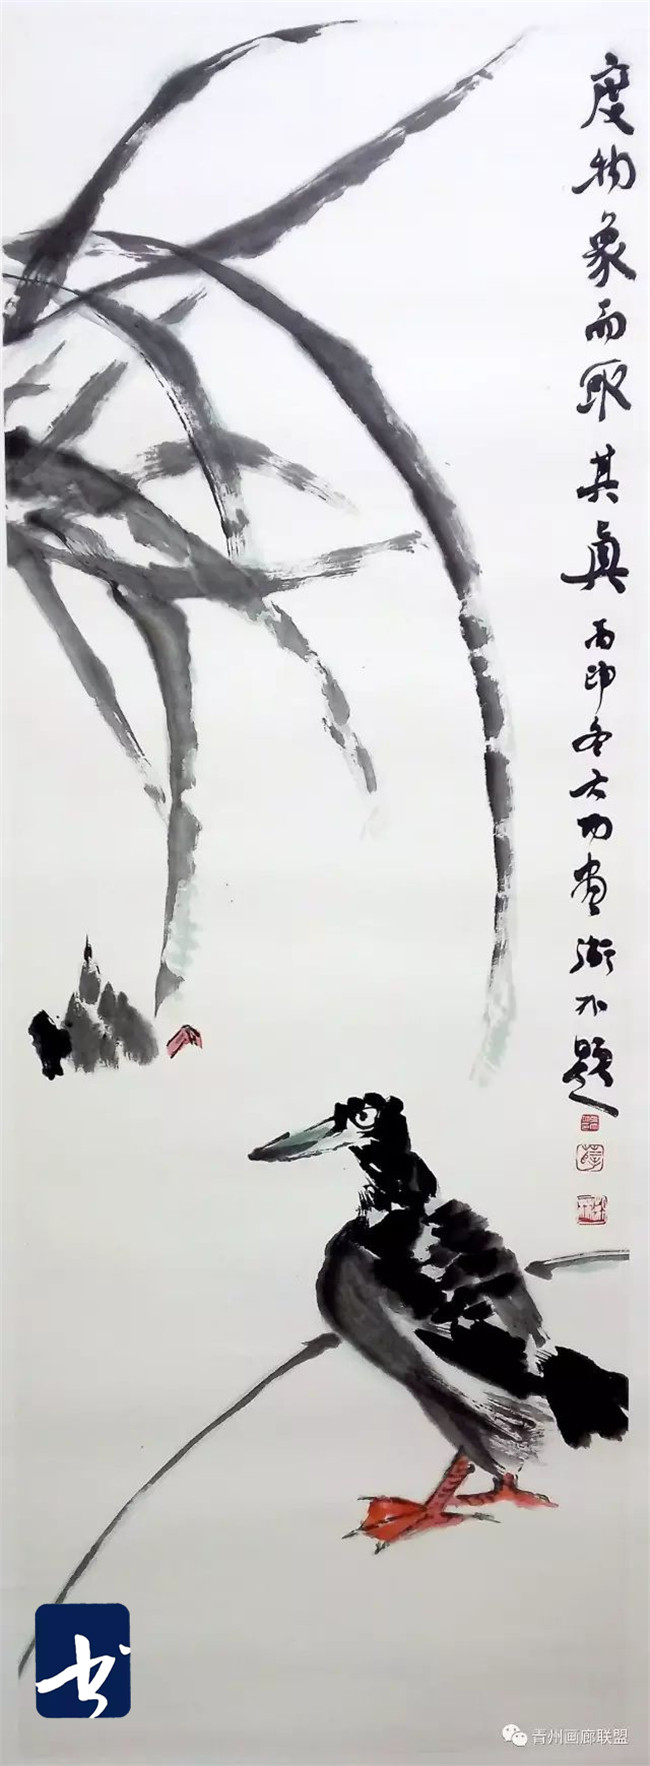 度物象而取其真丙申冬大画題
书
青州画廊联盟